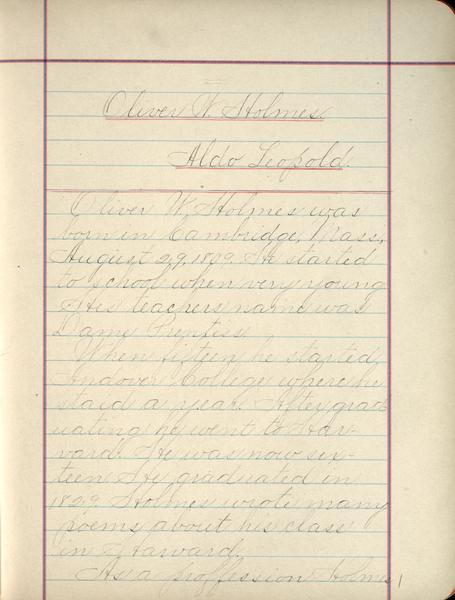 Oliver W. Holmes.
Aldo Leopold.
Oliver W. Holmes was
born in Cambridge, Mass,
August 29, 1809. He started
to school when very young
His teachers name was
Dame Prentiss.
When fifteen he started,
Andover College where he
staid a year. After grad-
uating he went to Har-
vard. He was now six-
teen. He graduated in
1829. Holmes wrote many
poems about his class
in Harward.
As a proffession Holmes